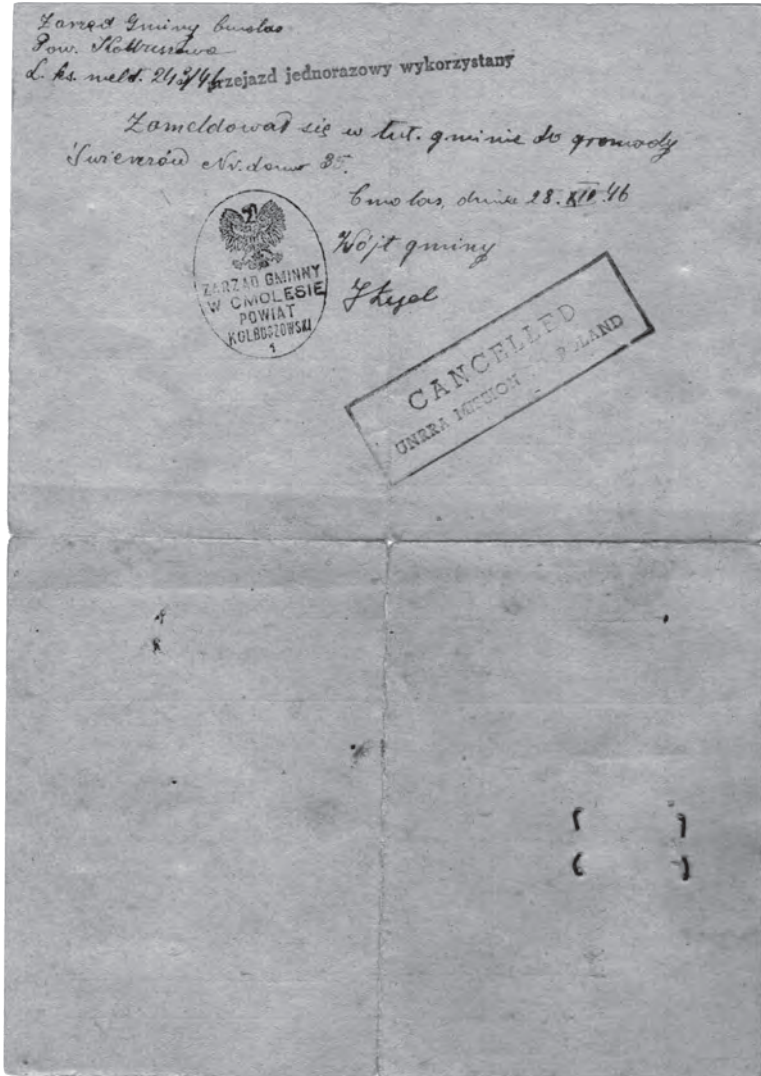 Zarząd Gminy Cmolas
Pow. Kolbuszowa
L. ks. meld. /46
przejazd jednorazowy wykorzystany
Zameldował się w tut. gminie do gromady
Nr. domu 35.
Cmolas, dnia 28. XII. 46
Wójt gminy
ZARZĄD GMINNY
W CMOLESIE
POWIAT
KOLBUSZOWSKI
1
CANCELLED
UNRRA MISSION POLAND